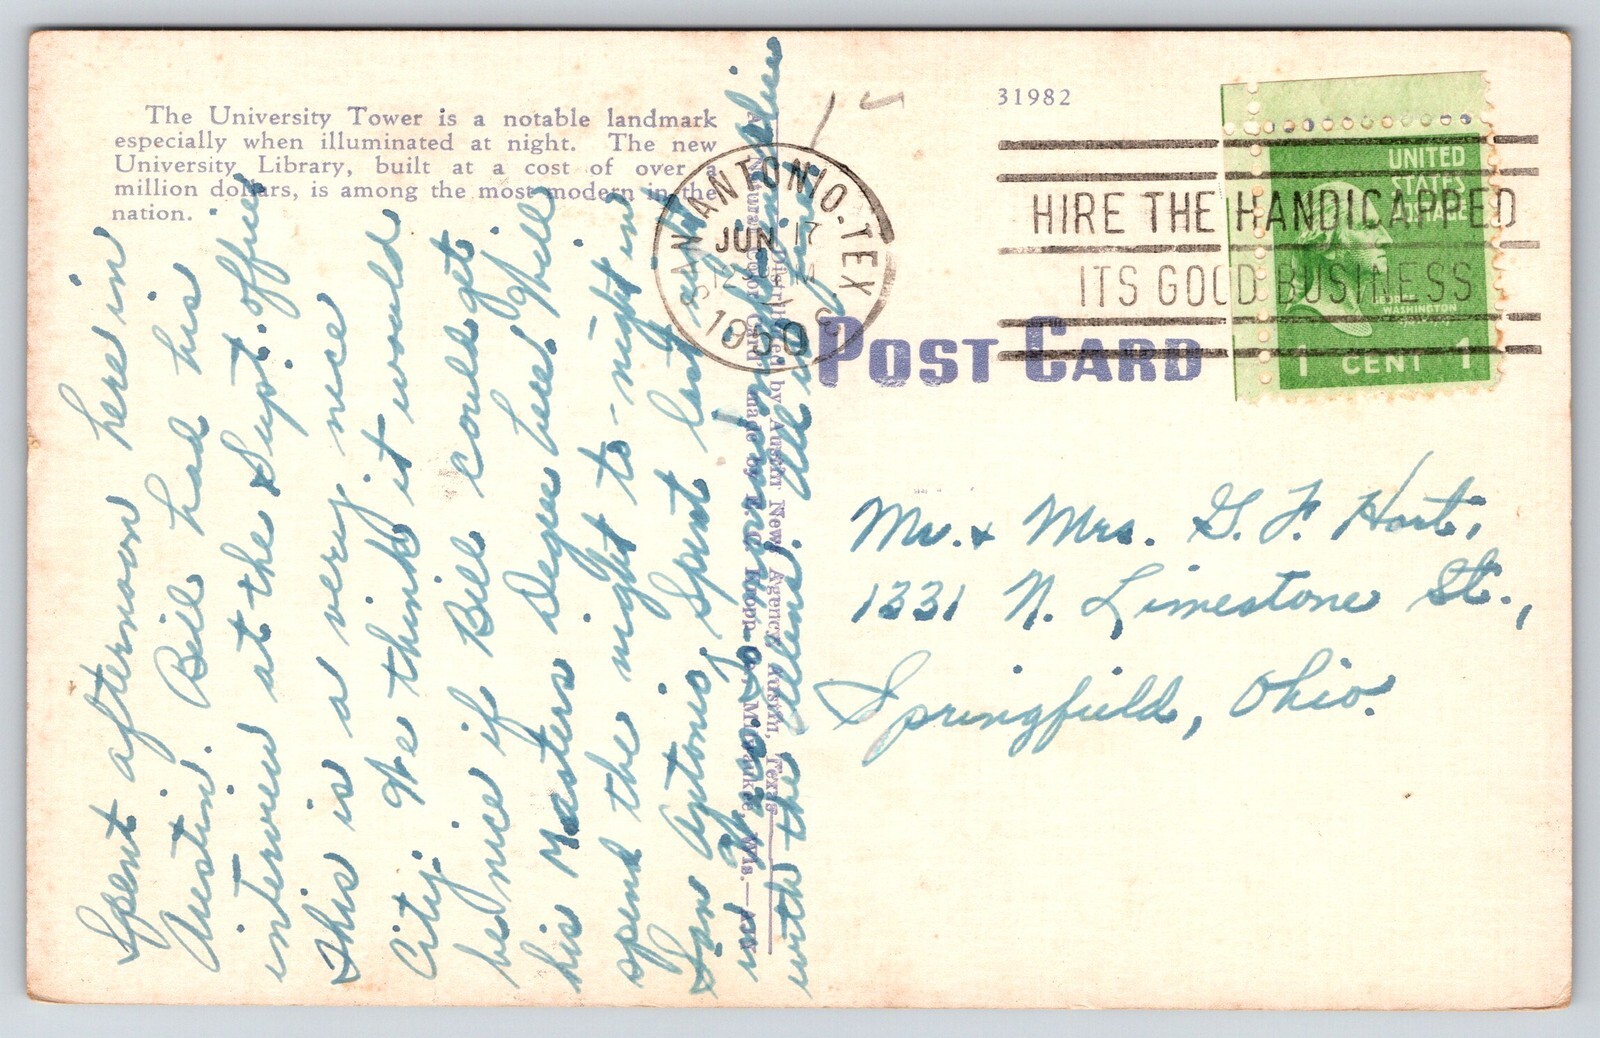 The University Tower is a notable landmark
especially when illuminated at night. The new
University Library, built at a cost of over a
million dollars, is among the most modern in the
nation.
31982
SAN ANTONIO. TEX
JUN 17
1950
HIRE THE HANDICAPPED
ITS GOOD BUSINESS
UNITED
STATES
POSTAGE
GEORGE
WASHINGTON
1 CENT 1
POST CARD
Mr. & Mrs. G. F. Hart,
1331 N. Limestone St.,
Springfield, Ohio.
Spent afternoon here in
Austin. Bill had his
interview at the Supt. office
This is a very nice
City. We think it would
be nice if Bill could get
his Masters Degree here. Will
spend the night to-night in
San Antonio, Spent last night
in
with the Allens. All is fine
Distributed by Austin News Agency, Austin, Texas
Natural Color Card made by E. C. Kropp Co., Milwaukee, Wis.